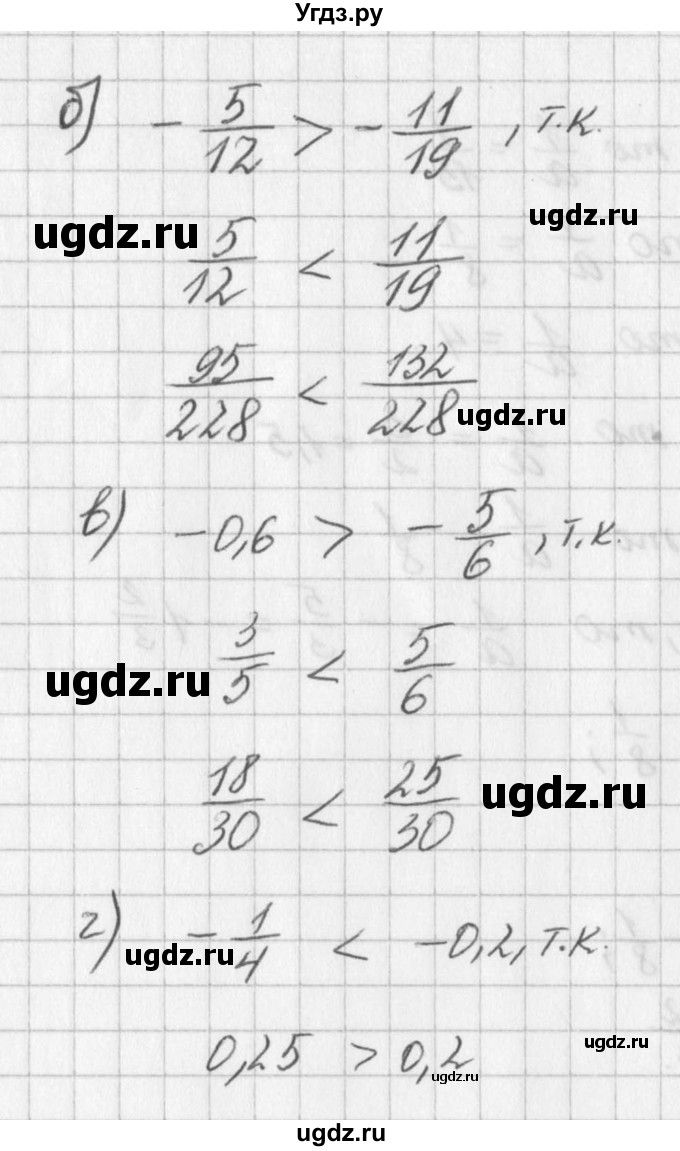 Угдз.ру
б) -5/12 > -11/19, т.к.
ugdz.ru
ugdz.ru
5/12 < 11/19
95/228 < 132/228
ugdz.ru
в) -0,6 > -5/6, т.к.
3/5 < 5/6
ugdz.ru
18/30 < 25/30
ugdz.ru
г) -1/4 < -0,2, т.к.
ugdz.ru
0,25 > 0,2
ugdz.ru
ugdz.ru
ugdz.ru